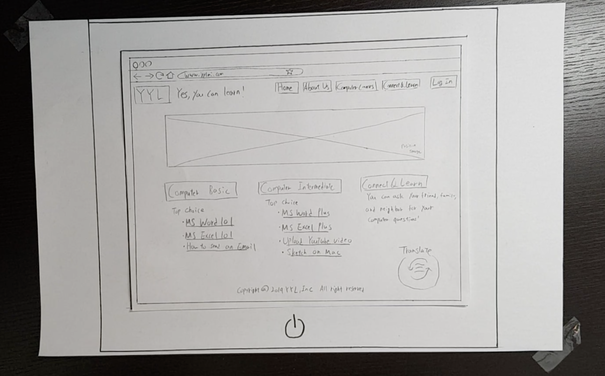 YYL Yes, you can learn!
Home About Us Computer Connect & Learn Log In
Computer Basic
Top choice
• MS Word 101
• MS Excel 101
• How to use an Email
Computer Intermediate
Top choice
• MS Word Plus
• MS Excel Plus
• Upload Youtube video
• Sketch on Mac
Connect & Learn
You can make new friend,
and neighbor for your
computer question!
Translate
Copyright © YYL, Inc. All right reserved